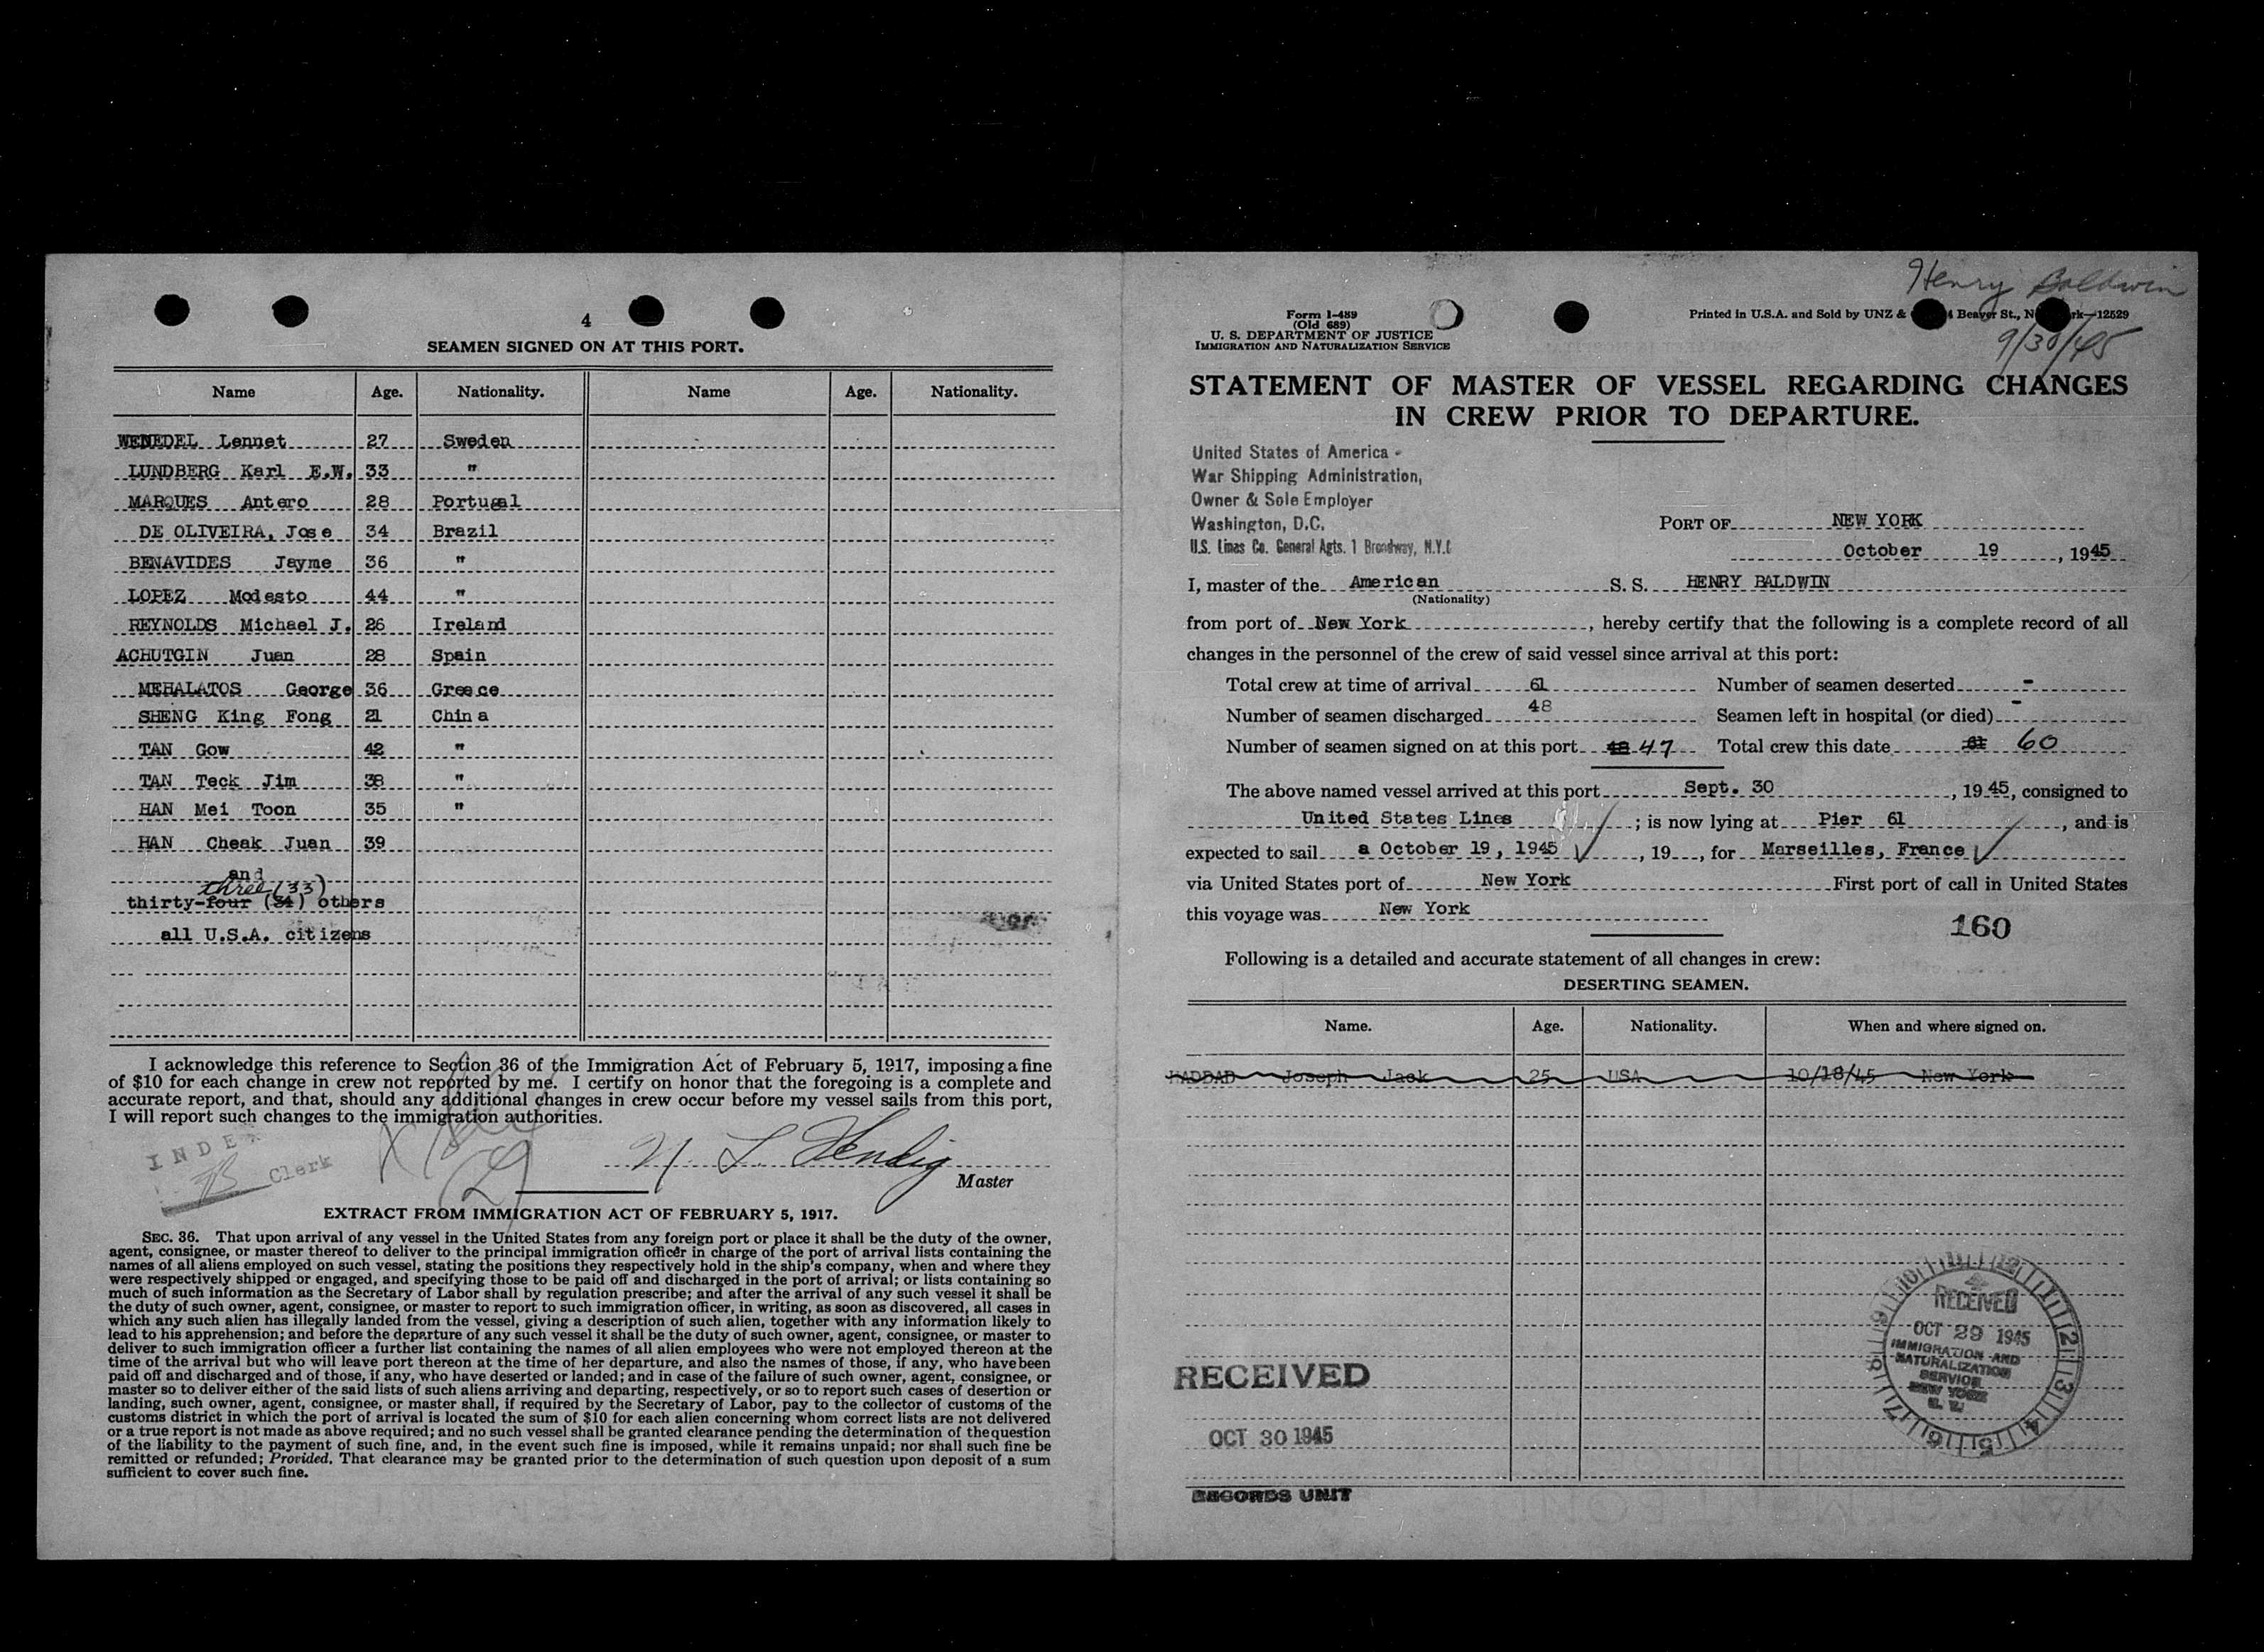 4
SEAMEN SIGNED ON AT THIS PORT.
Name Age. Nationality. Name Age. Nationality.
WENEDEL Lennet 27 Sweden
LUNDBERG Karl E.W. 33 "
MARQUES Antero 28 Portugal
DE OLIVEIRA, Jose 34 Brazil
BENAVIDES Jayme 36 "
LOPEZ Modesto 44 "
REYNOLDS Michael J. 26 Ireland
ACHUTGIN Juan 28 Spain
MEHALATOS George 36 Greece
SHENG King Fong 21 China
TAN Gow 42 "
TAN Teck Jim 38 "
HAN Mei Toon 35 "
HAN Cheak Juan 39
and
three (33)
thirty-four (34) others
all U.S.A. citizens
I acknowledge this reference to Section 36 of the Immigration Act of February 5, 1917, imposing a fine
of $10 for each change in crew not reported by me. I certify on honor that the foregoing is a complete and
accurate report, and that, should any additional changes in crew occur before my vessel sails from this port,
I will report such changes to the immigration authorities.
INDEX
Clerk
N. L. Hendig
Master
EXTRACT FROM IMMIGRATION ACT OF FEBRUARY 5, 1917.
SEC. 36. That upon arrival of any vessel in the United States from any foreign port or place it shall be the duty of the owner,
agent, consignee, or master thereof to deliver to the principal immigration officer in charge of the port of arrival lists containing the
names of all aliens employed on such vessel, stating the positions they respectively hold in the ship's company, when and where they
were respectively shipped or engaged, and specifying those to be paid off and discharged in the port of arrival; or lists containing so
much of such information as the Secretary of Labor shall by regulation prescribe; and after the arrival of any such vessel it shall be
the duty of such owner, agent, consignee, or master to report to such immigration officer, in writing, as soon as discovered, all cases in
which any such alien has illegally landed from the vessel, giving a description of such alien, together with any information likely to
lead to his apprehension; and before the departure of any such vessel it shall be the duty of such owner, agent, consignee, or master to
deliver to such immigration officer a further list containing the names of all alien employees who were not employed thereon at the
time of the arrival but who will leave port thereon at the time of her departure, and also the names of those, if any, who have been
paid off and discharged and of those, if any, who have deserted or landed; and in case of the failure of such owner, agent, consignee, or
master so to deliver either of the said lists of such aliens arriving and departing, respectively, or so to report such cases of desertion or
landing, such owner, agent, consignee, or master shall, if required by the Secretary of Labor, pay to the collector of customs of the
customs district in which the port of arrival is located the sum of $10 for each alien concerning whom correct lists are not delivered
or a true report is not made as above required; and no such vessel shall be granted clearance pending the determination of the question
of the liability to the payment of such fine, and, in the event such fine is imposed, while it remains unpaid; nor shall such fine be
remitted or refunded; Provided, That clearance may be granted prior to the determination of such question upon deposit of a sum
sufficient to cover such fine.
Henry Baldwin
9/30/45
Form I-489
(Old 689)
U. S. DEPARTMENT OF JUSTICE
IMMIGRATION AND NATURALIZATION SERVICE
Printed in U.S.A. and Sold by UNZ & Beaver St., N rk—12529
STATEMENT OF MASTER OF VESSEL REGARDING CHANGES
IN CREW PRIOR TO DEPARTURE.
United States of America -
War Shipping Administration,
Owner & Sole Employer
Washington, D.C.
U.S. Lines Co. General Agts. 1 Broadway, N.Y.C
PORT OF NEW YORK
October 19, 1945
I, master of the American S. S. HENRY BALDWIN
(Nationality)
from port of New York, hereby certify that the following is a complete record of all
changes in the personnel of the crew of said vessel since arrival at this port:
Total crew at time of arrival 61 Number of seamen deserted -
Number of seamen discharged 48 Seamen left in hospital (or died) -
Number of seamen signed on at this port 48 47 Total crew this date 61 60
The above named vessel arrived at this port Sept. 30, 1945, consigned to
United States Lines ; is now lying at Pier 61, and is
expected to sail a October 19, 1945, 19 , for Marseilles, France
via United States port of New York First port of call in United States
this voyage was New York
160
Following is a detailed and accurate statement of all changes in crew:
DESERTING SEAMEN.
Name. Age. Nationality. When and where signed on.
HADDAD Joseph Jack 25 USA 10/18/45 New York
RECEIVED
OCT 30 1945
RECORDS UNIT
RECEIVED
OCT 29 1945
IMMIGRATION AND
NATURALIZATION
SERVICE
NEW YORK
N. Y.